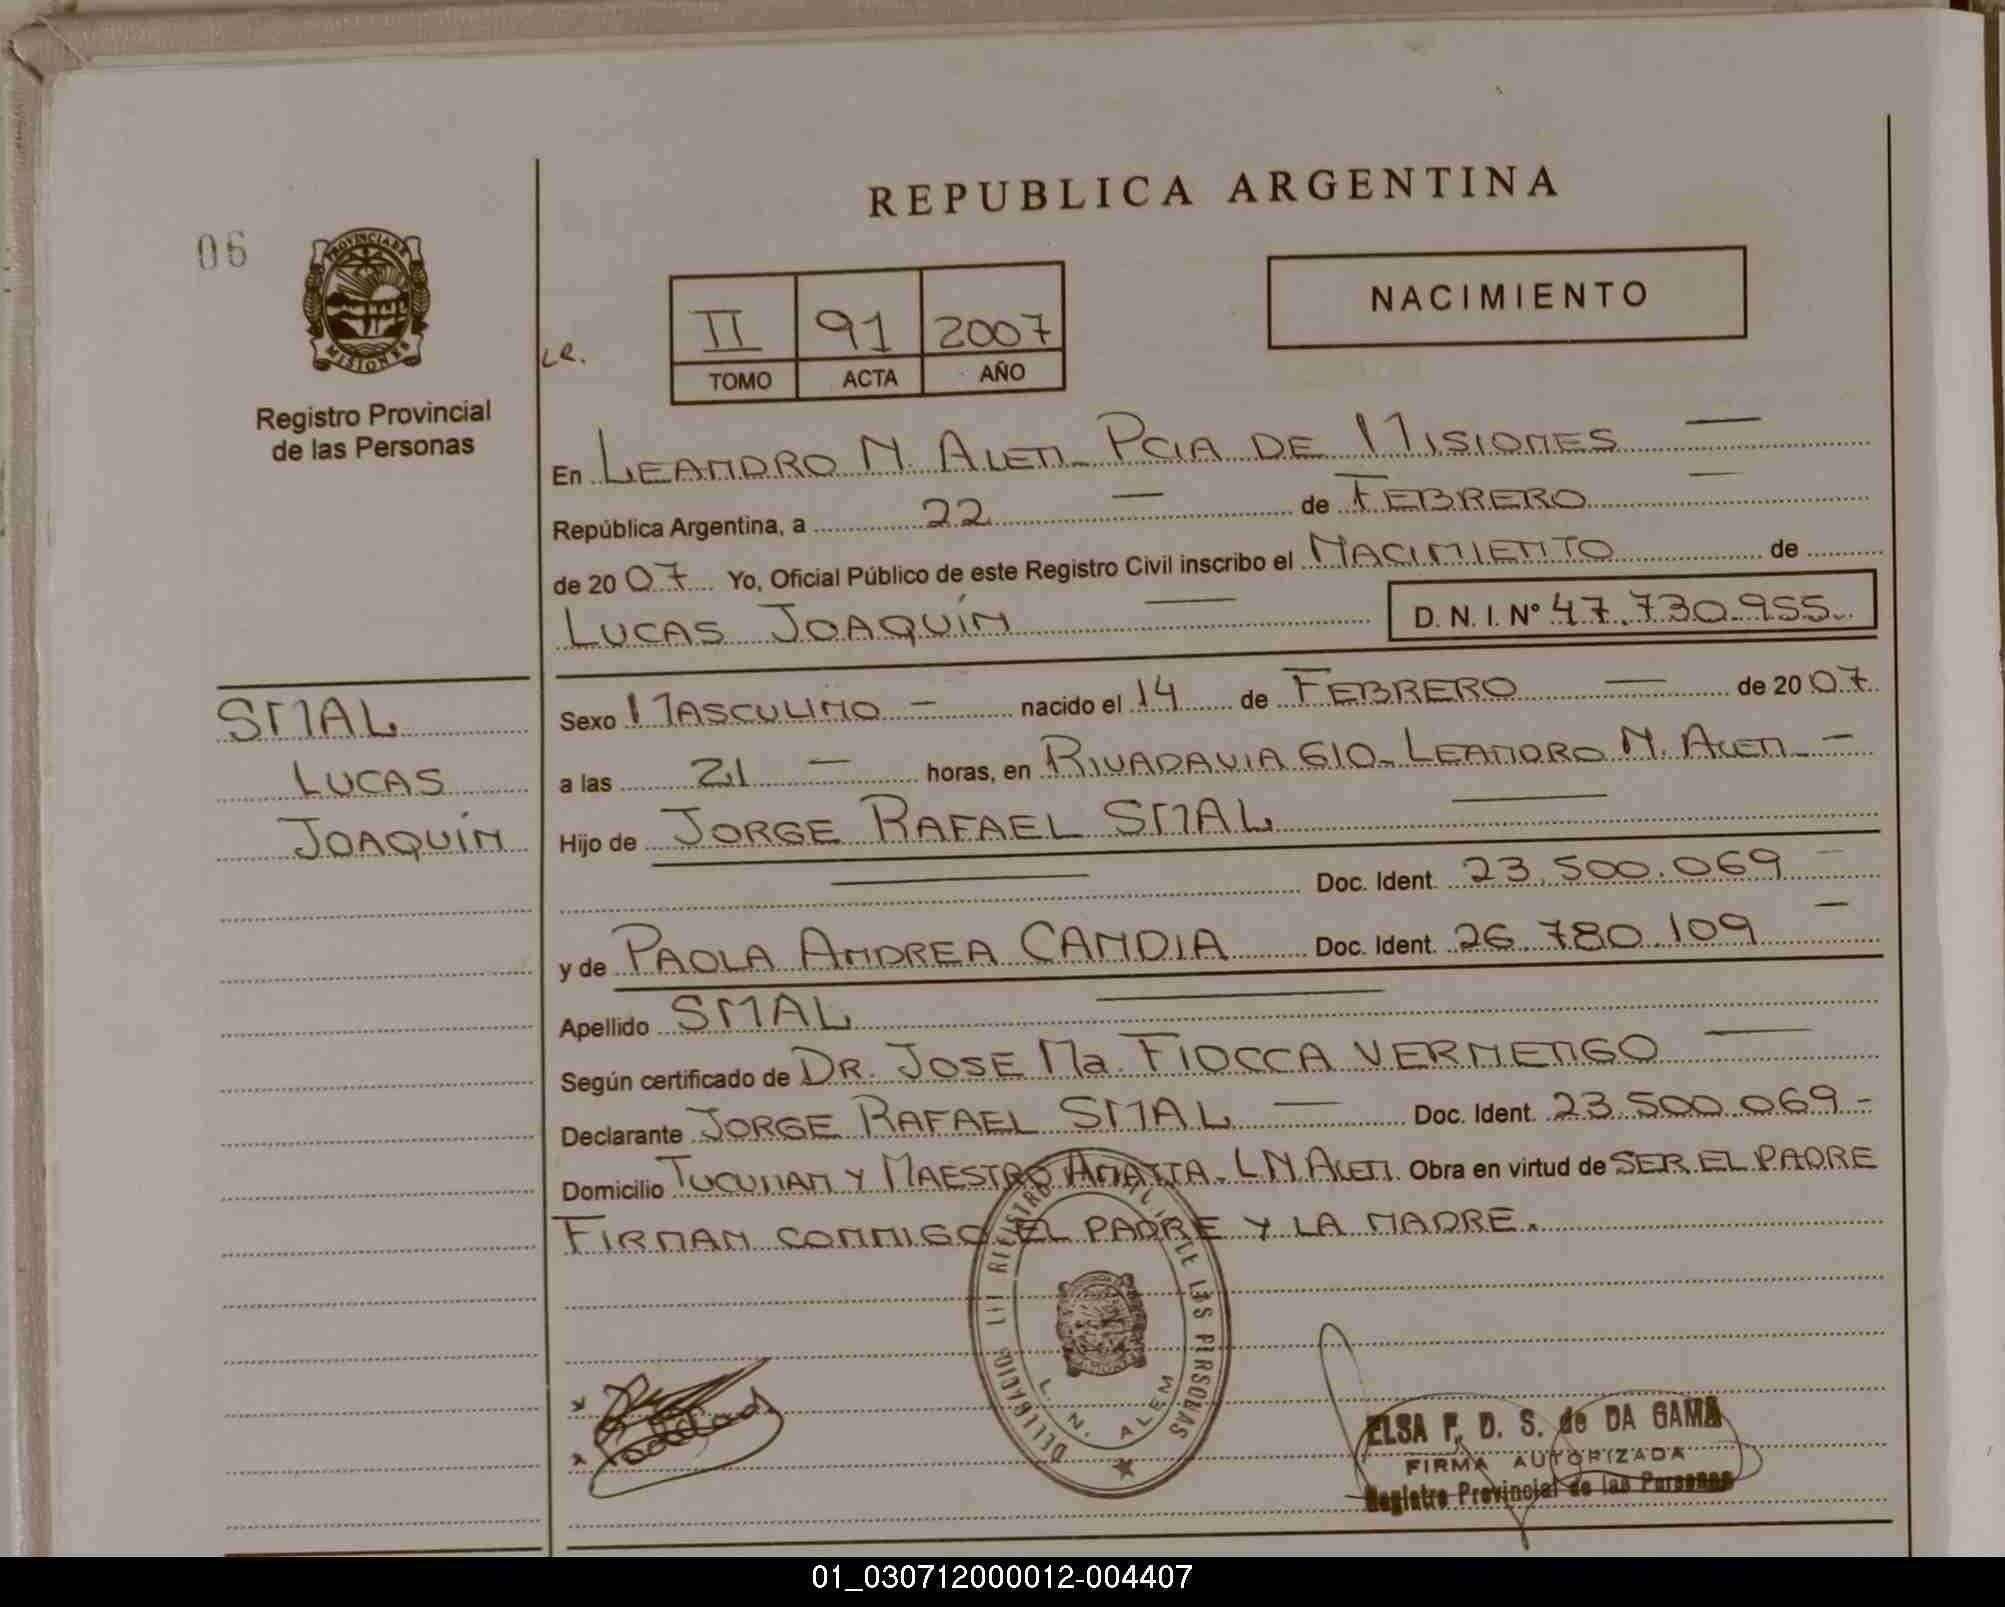 REPUBLICA ARGENTINA
06
PROVINCIA DE
MISIONES
Registro Provincial
de las Personas
LR.
II 91 2007
TOMO ACTA AÑO
NACIMIENTO
En LEANDRO N. ALEM - PCIA DE MISIONES —
República Argentina, a 22 — de FEBRERO —
de 2007 Yo, Oficial Público de este Registro Civil inscribo el NACIMIENTO de
LUCAS JOAQUÍN — D. N. I. Nº 47.730.955
SMAL
LUCAS
JOAQUÍN
Sexo MASCULINO — nacido el 14 de FEBRERO — de 2007
a las 21 — horas, en RIVADAVIA 610 - LEANDRO N. ALEM —
Hijo de JORGE RAFAEL SMAL —
— Doc. Ident. 23.500.069 —
y de PAOLA ANDREA CANDIA Doc. Ident. 26.780.109 —
Apellido SMAL —
Según certificado de DR. JOSE Ma. FIOCCA VERMENGO —
Declarante JORGE RAFAEL SMAL — Doc. Ident. 23.500.069 -
Domicilio TUCUMAN Y MAESTRO - L N ALEM Obra en virtud de SER EL PADRE
FIRMAN CONMIGO EL PADRE Y LA MADRE.
L. N. ALEM
ELSA F. D. S. de DA GAMA
FIRMA AUTORIZADA
Registro Provincial de las Personas
01_030712000012-004407